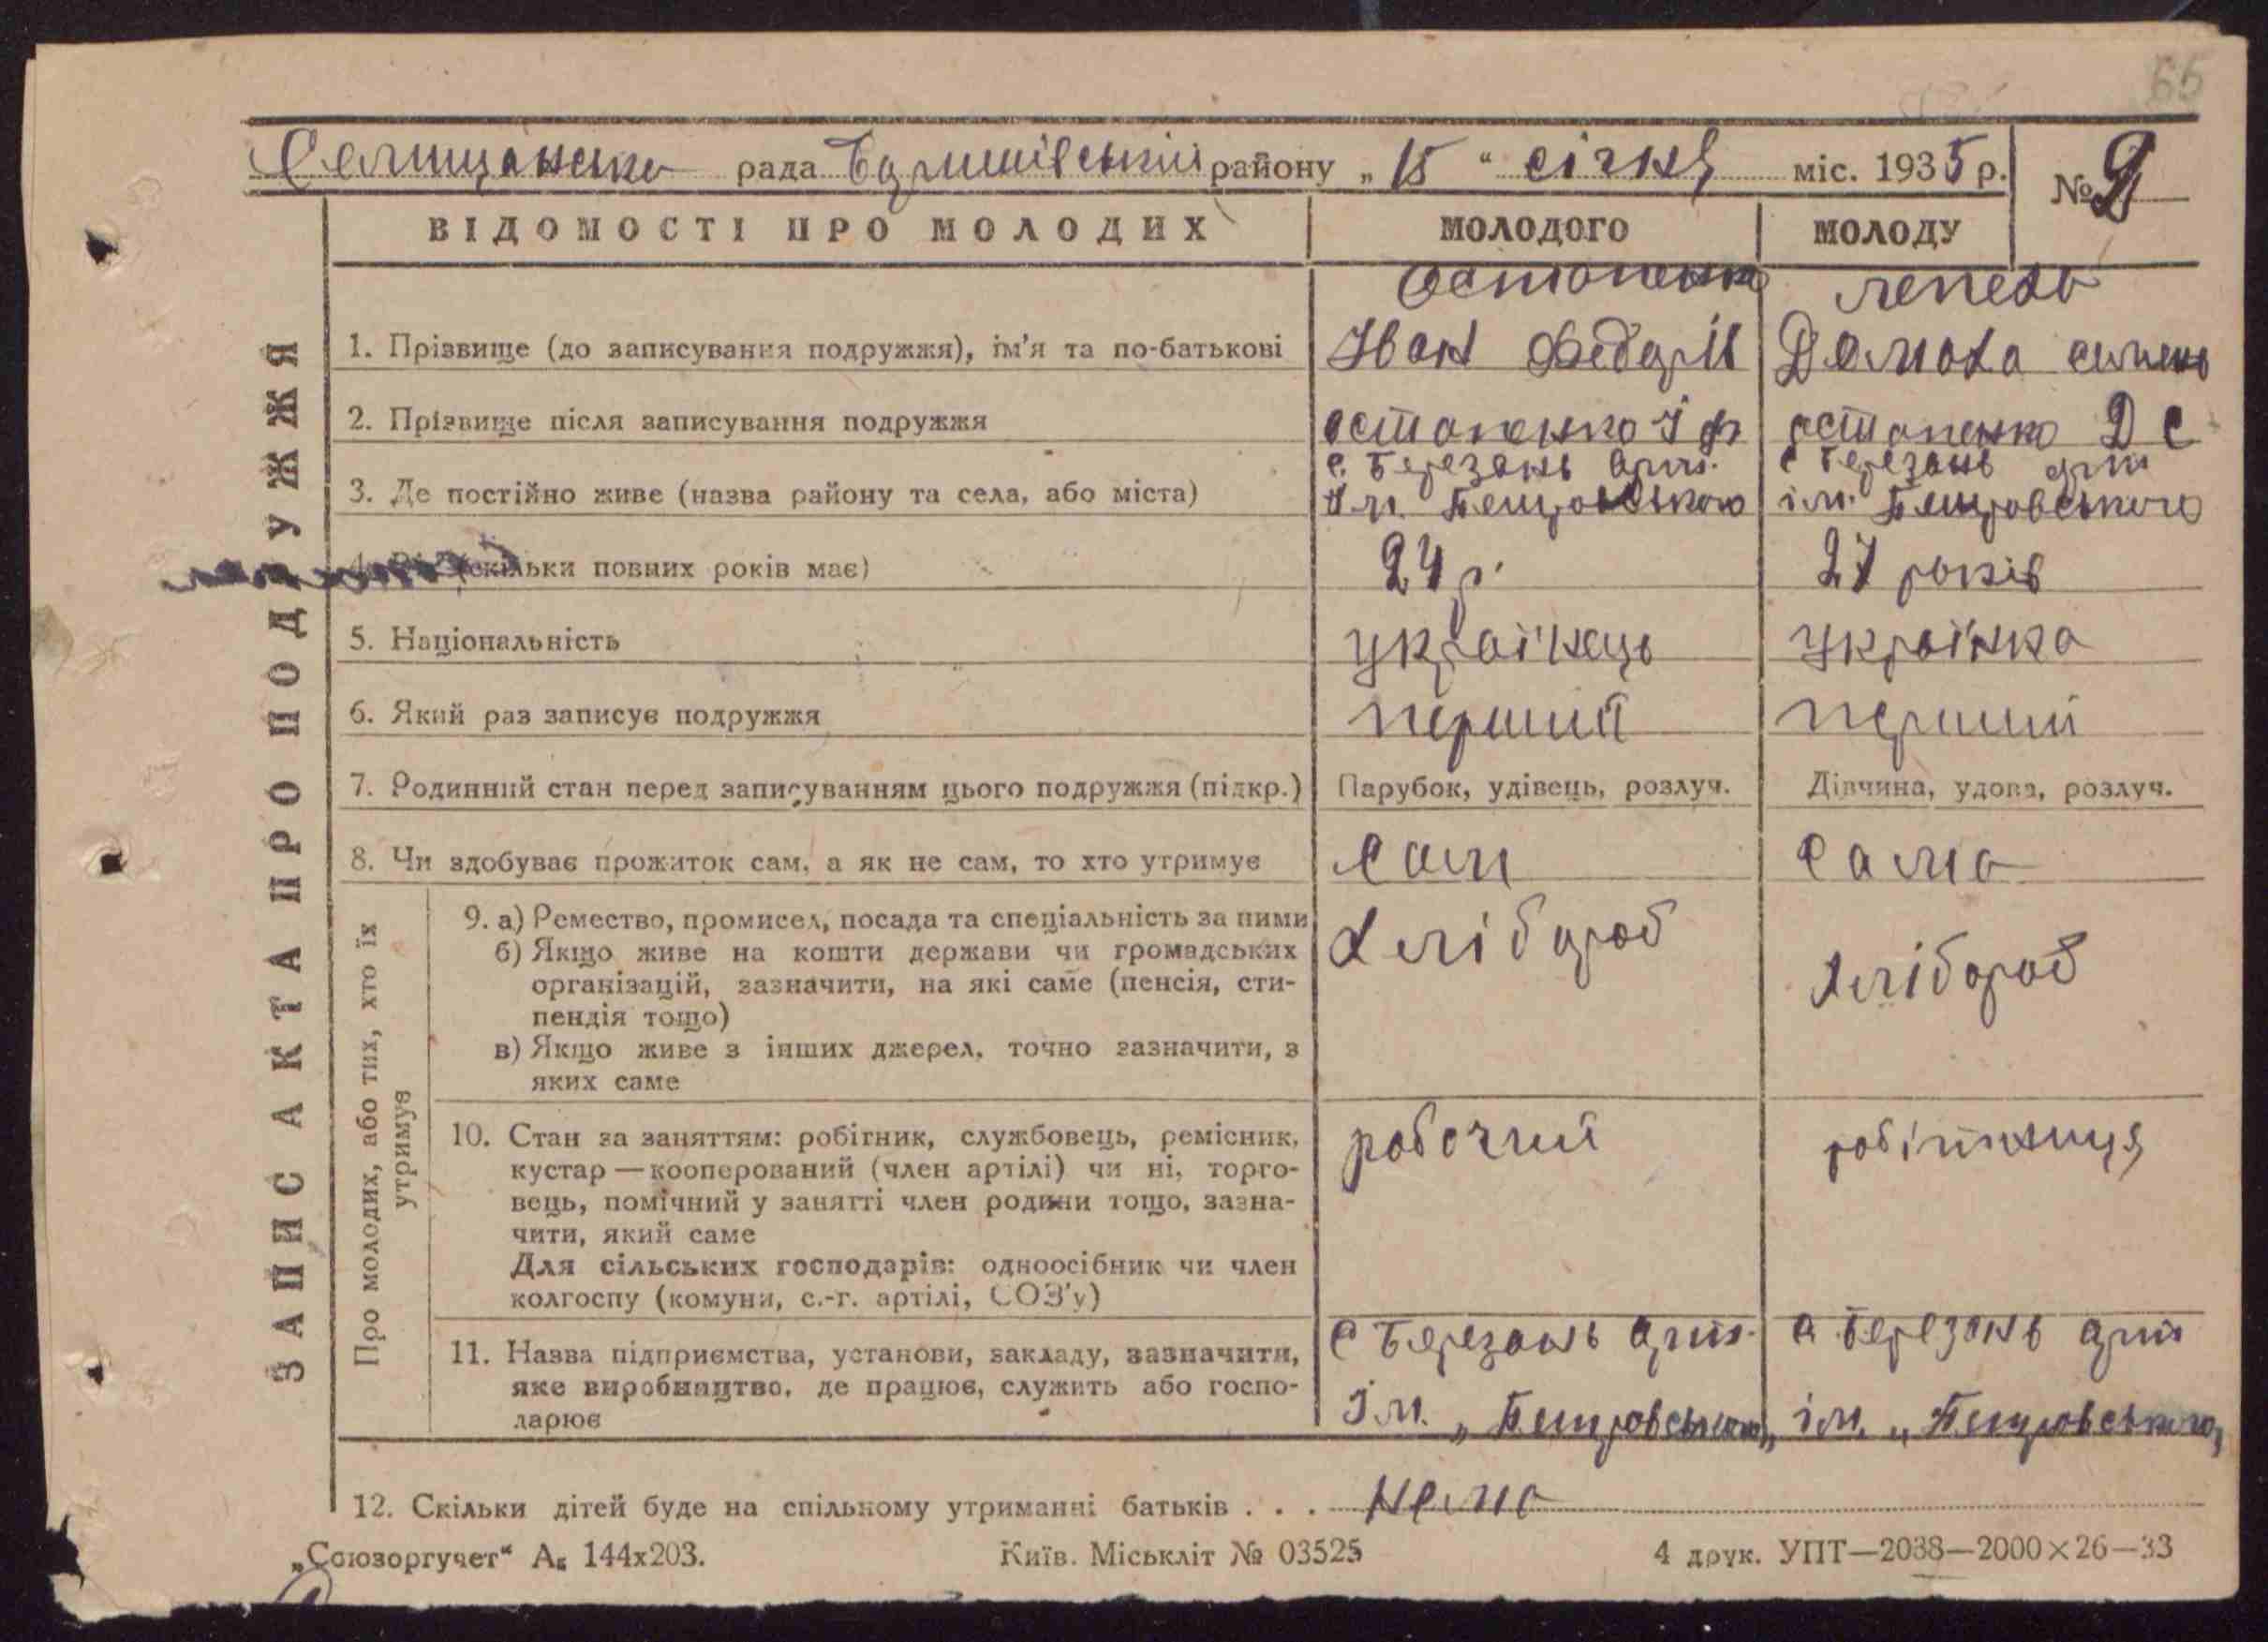 65
Селищанська рада Баришівський району „ 15 “ січня міс. 1935 р.
№ 2
ВІДОМОСТІ ПРО МОЛОДИХ МОЛОДОГО МОЛОДУ
Остапенко лепеха
1. Прізвище (до записування подружжя), ім'я та по-батькові Іван Федорів Домаха
2. Прізвище після записування подружжя остапенко І ф остапенко Д С
с. Березань арт. с Березань арт
3. Де постійно живе (назва району та села, або міста) Ім. Петровського ім. Петровського
(скільки повних років має) 24 р. 27 років
5. Національність українець українка
6. Який раз записує подружжя перший перший
7. Родинний стан перед записуванням цього подружжя (підкр.) Парубок, удівець, розлуч. Дівчина, удова, розлуч.
8. Чи здобуває прожиток сам, а як не сам, то хто утримує сам сама
9. а) Ремество, промисел, посада та спеціальність за ними хлібороб хлібороб
б) Якщо живе на кошти держави чи громадських
організацій, зазначити, на які саме (пенсія, сти-
пендія тощо)
в) Якщо живе з інших джерел, точно зазначити, з
яких саме
10. Стан за заняттям: робітник, службовець, ремісник, робочий робітниця
кустар — кооперований (член артілі) чи ні, торго-
вець, помічний у занятті член родини тощо, зазна-
чити, який саме
Для сільських господарів: одноосібник чи член
колгоспу (комуни, с.-г. артілі, СОЗ'у)
11. Назва підприємства, установи, закладу, зазначити, с Березань арт. с Березань арт
яке виробництво, де працює, служить або госпо- Ім. „Петровського„ ім. „Петровського„
дарює
12. Скільки дітей буде на спільному утриманні батьків . . . нема
„Союзоргучет“ А₅ 144х203. Київ. Міськліт № 03525 4 друк. УПТ—2038—2000×26—33
ЗАПИС АКТА ПРО ПОДРУЖЖЯ
Про молодих, або тих, хто їх
утримує